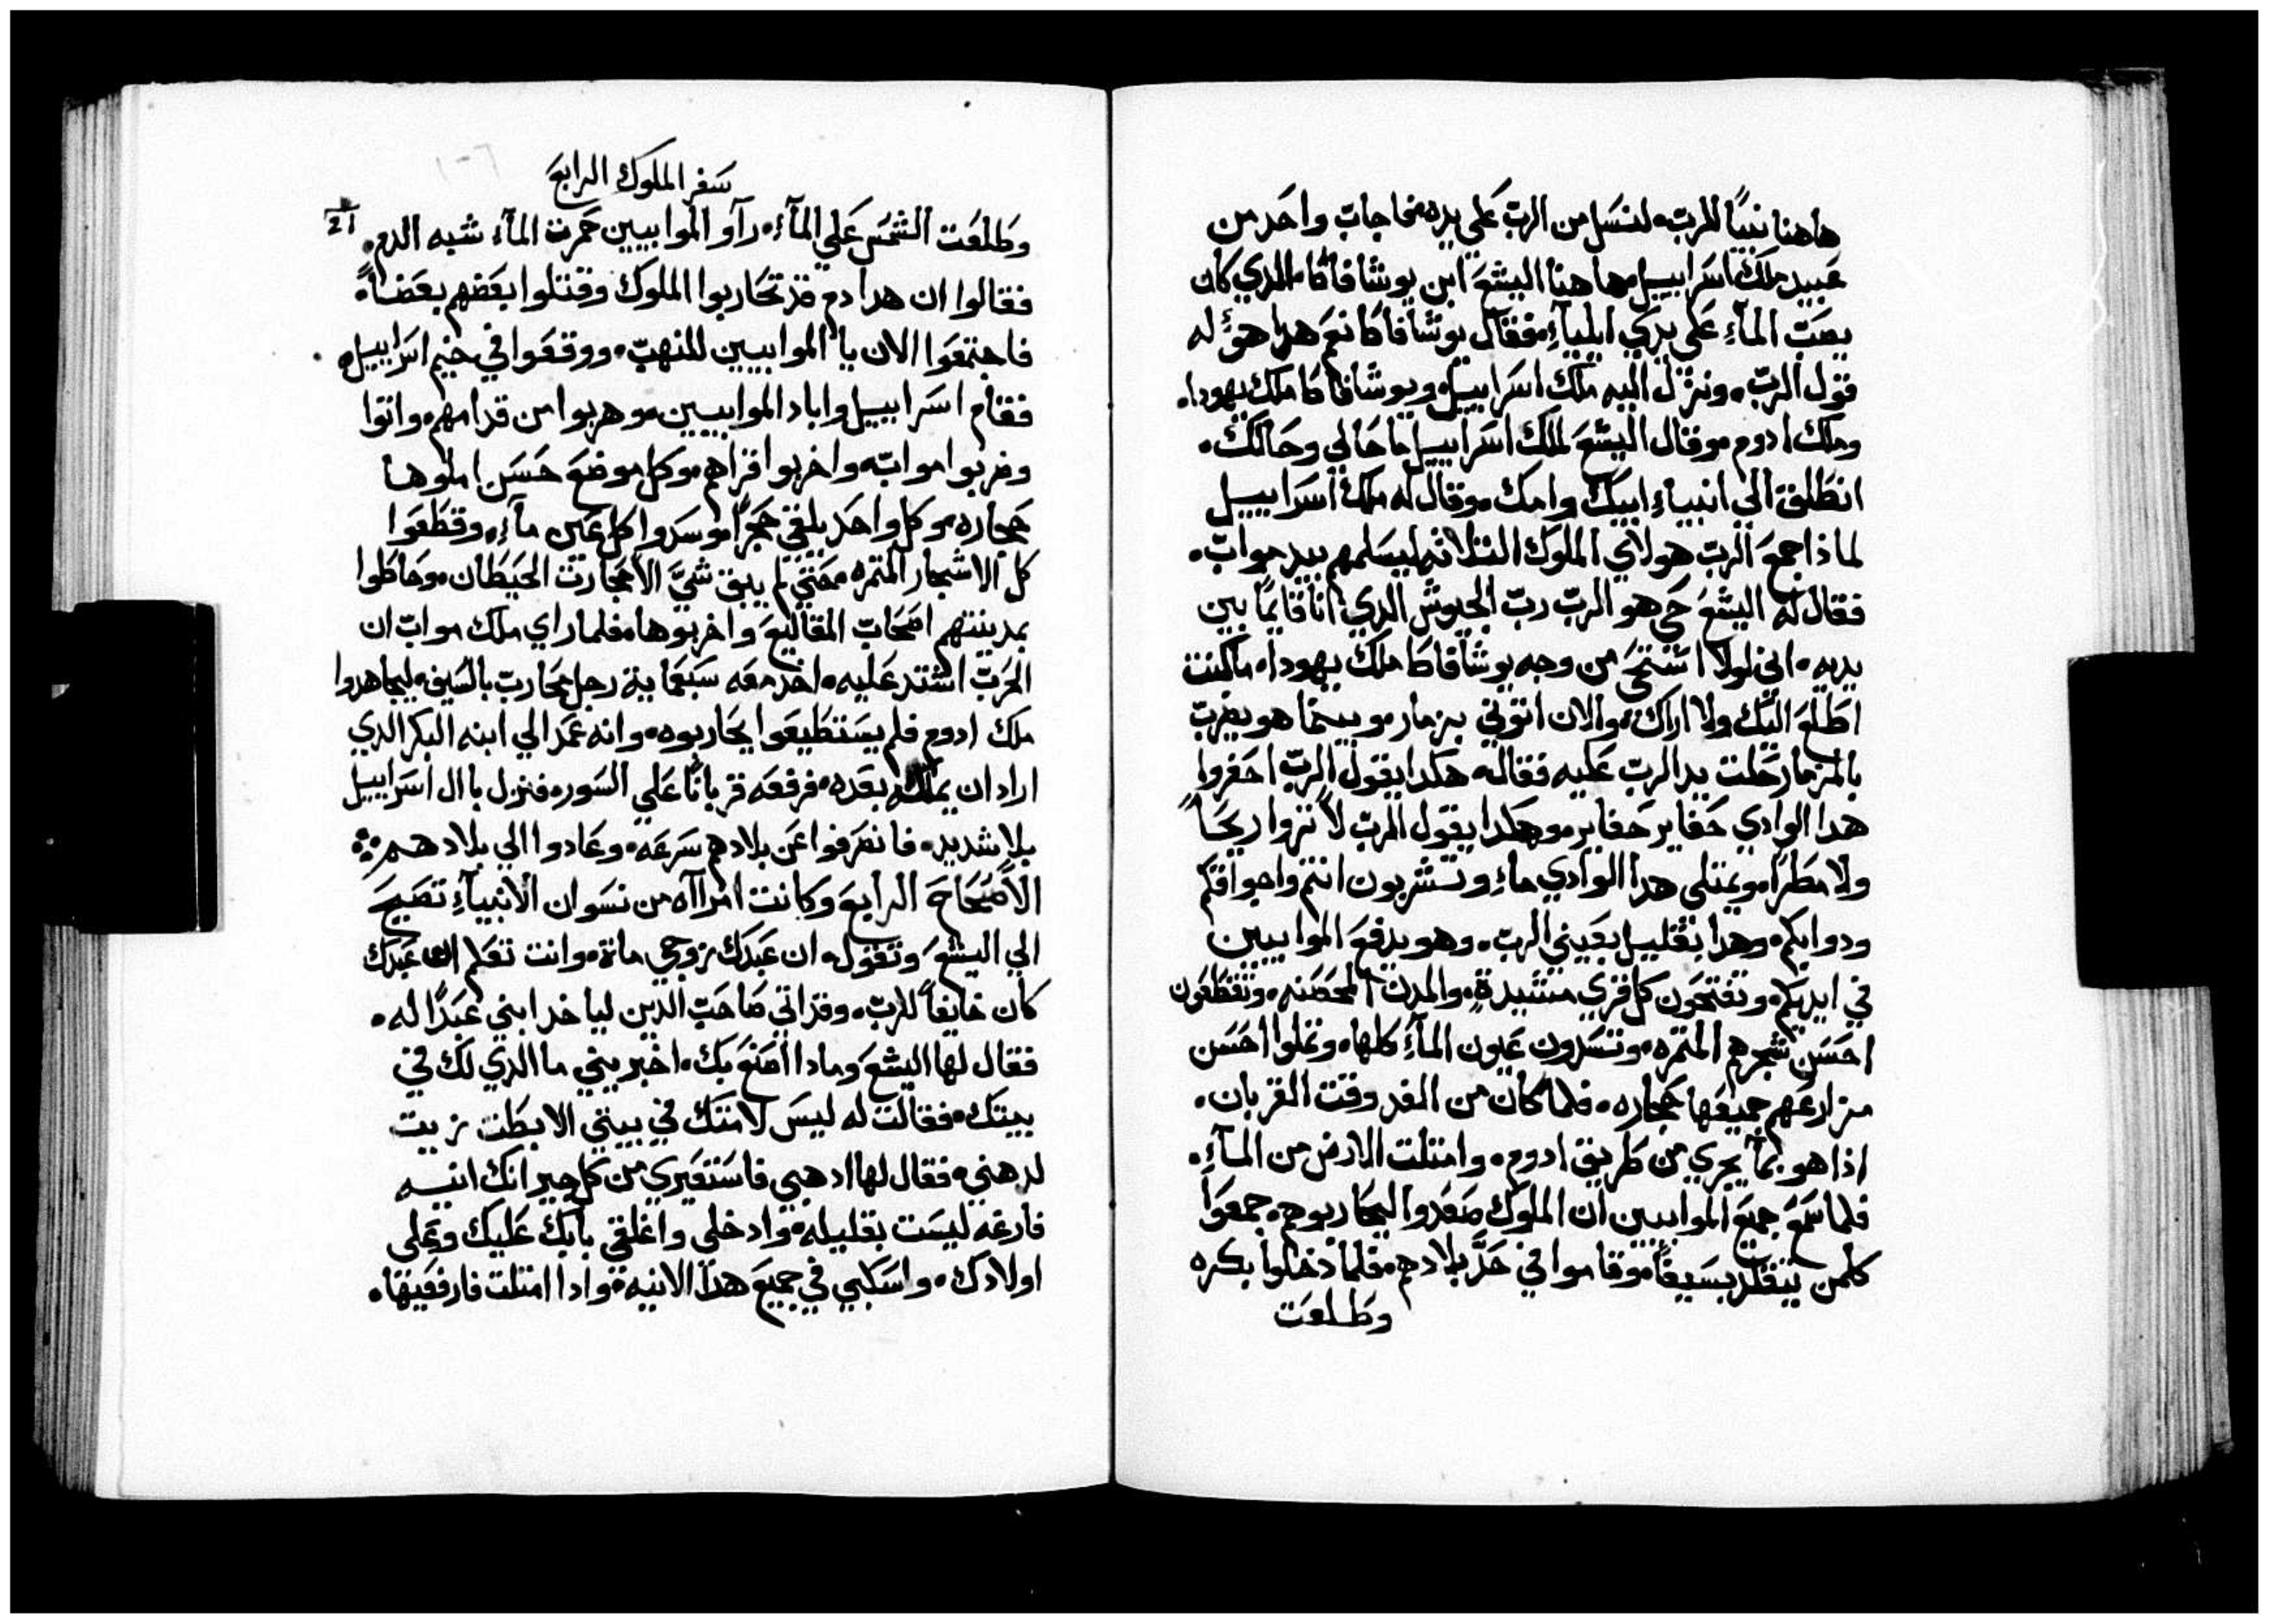 هاهنا نبيًا للرب، لنسل من الرب علي يده، فاجاب واحد من
عبيد ملك اسراييل، هاهنا اليشع ابن يوشافاكا، الدي كان
يصب الماء علي يدي ايلياء، فقال يوشافاكا نعم هدا هو له
قول الرب، ونزل اليه ملك اسراييل، ويوشافاكا ملك يهودا،
وملك ادوم، وقال اليشع لملك اسراييل ما حالي وحالك،
انطلق الي انبياء ابيك وامك، وقال له ملك اسراييل
لماذا جمع الرب هولاي الملوك التلاته ليسلمهم بيد مواب،
فقال له اليشع حي هو الرب رب الجيوش الدي انا قايمًا بين
يديه، اني لولا استحي من وجه يوشافاكا ملك يهودا، ما كنت
اطلع اليك ولا اراك، والان اتوني بزمار، وبينما هو يضرب
بالمزمار حلت يد الرب عليه فقال، هكدا يقول الرب احفروا
هدا الوادي حفاير حفاير، وهكدا يقول الرب لا تروا ريحًا
ولا مطرًا، ويمتلي هدا الوادي ماء، وتشربون انتم واحواقكم
ودوابكم، وهدا بقليل بعيني الرب، وهو يدفع الموابيين
في ايديكم، وتفتحون كل قري مشيدة، والمدن المحصنه، وتقطعون
احسن شجرهم المتمره، وتسدون عيون الماء كلها، وتملوا احسن
مزارعهم جميعها حجاره، فلما كان من الغد وقت القربان،
اذا هو بماء يجري من طريق ادوم، وامتلت الارض من الماء،
فلما سمع جميع الموابيين ان الملوك صعدوا ليحاربوهم، جمعوا
كلمن يتقلد بسيفًا، وقاموا في حد بلادهم، فلما دخلوا بكره
وطلعت
سفر الملوك الرابع
١٠٦
21
وطلعت الشمس علي الماء، راو الموابيين حمرت الماء شبه الدم،
فقالوا ان هدا دم قد تحاربوا الملوك وقتلوا بعضهم بعضاً،
فاجتمعوا الان يا الموابيين للنهب، ووقعوا في خيم اسراييل،
فقام اسراييل واباد الموابيين، وهربوا من قدامهم، واتوا
وضربوا مواب، واخربوا قراهم، وكل موضع حسن املوها
حجاره، وكل واحد يلقي حجرًا، وسدوا كل عين ماء، وقطعوا
كل الاشجار المتمره، حتي لم يبق شيَّ الا حجارت الحيطان، وحاطوا
بمدينتهم اصحاب المقاليع واخربوها، فلما راي ملك مواب ان
الحرب اشتد عليه، اخد معه سبعماية رجل محارب بالسيف، ليجاهدوا
ملك ادوم فلم يستطيعوا يحاربوه، وانه عمد الي ابنه البكر الدي
اراد ان يملك بعده، فرفعه قربانًا علي السور، فنزل بال اسراييل
بلا شديد، فانصرفوا عن بلادهم سرعه، وعادوا الي بلادهم
الاصحاح الرابع وكانت امراه من نسوان الانبياء تصيح
الي اليشع وتقول، ان عبدك زوجي مات، وانت تعلم ان عبدك
كان خايفاً للرب، وقد اتي صاحب الدين لياخد ابني عبدًا له،
فقال لها اليشع وماذا اصنع بك، اخبريني ما الدي لك في
بيتك، فقالت له ليس لامتك في بيتي الا بطت زيت
لدهني، فقال لها ادهبي فاستعيري من كل جيرانك انيه
فارغه ليست بقليله، وادخلي واغلقي بابك عليك وعلي
اولادك، واسكبي في جميع هدا الانيه، وادا امتلت فارفعيها،